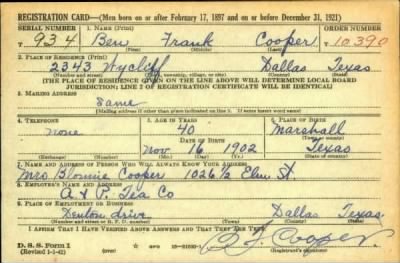 REGISTRATION CARD—(Men born on or after February 17, 1897 and on or before December 31, 1921)
SERIAL NUMBER 1. NAME (Print) ORDER NUMBER
934 Ben Frank Cooper 10390
(First) (Middle) (Last)
2. PLACE OF RESIDENCE (Print)
2343 Wycliff Dallas Texas
(Number and street) (Town, township, village, or city) (County) (State)
[THE PLACE OF RESIDENCE GIVEN ON THE LINE ABOVE WILL DETERMINE LOCAL BOARD
JURISDICTION; LINE 2 OF REGISTRATION CERTIFICATE WILL BE IDENTICAL]
3. MAILING ADDRESS
Same
[Mailing address if other than place indicated on line 2. If same insert word same]
4. TELEPHONE 5. AGE IN YEARS 6. PLACE OF BIRTH
None 40 Marshall
DATE OF BIRTH (Town or county)
Nov 16 1902 Texas
(Exchange) (Number) (Mo.) (Day) (Yr.) (State or country)
7. NAME AND ADDRESS OF PERSON WHO WILL ALWAYS KNOW YOUR ADDRESS
Mrs Blonnie Cooper 1026 1/2 Elm St.
8. EMPLOYER'S NAME AND ADDRESS
A. & P. Tea Co
9. PLACE OF EMPLOYMENT OR BUSINESS
Denton drive Dallas Texas
(Number and street or R. F. D. number) (Town) (County) (State)
I AFFIRM THAT I HAVE VERIFIED ABOVE ANSWERS AND THAT THEY ARE TRUE.
D. S. S. Form 1
(Revised 1-1-42) (over)
B F Cooper
(Registrant's signature)